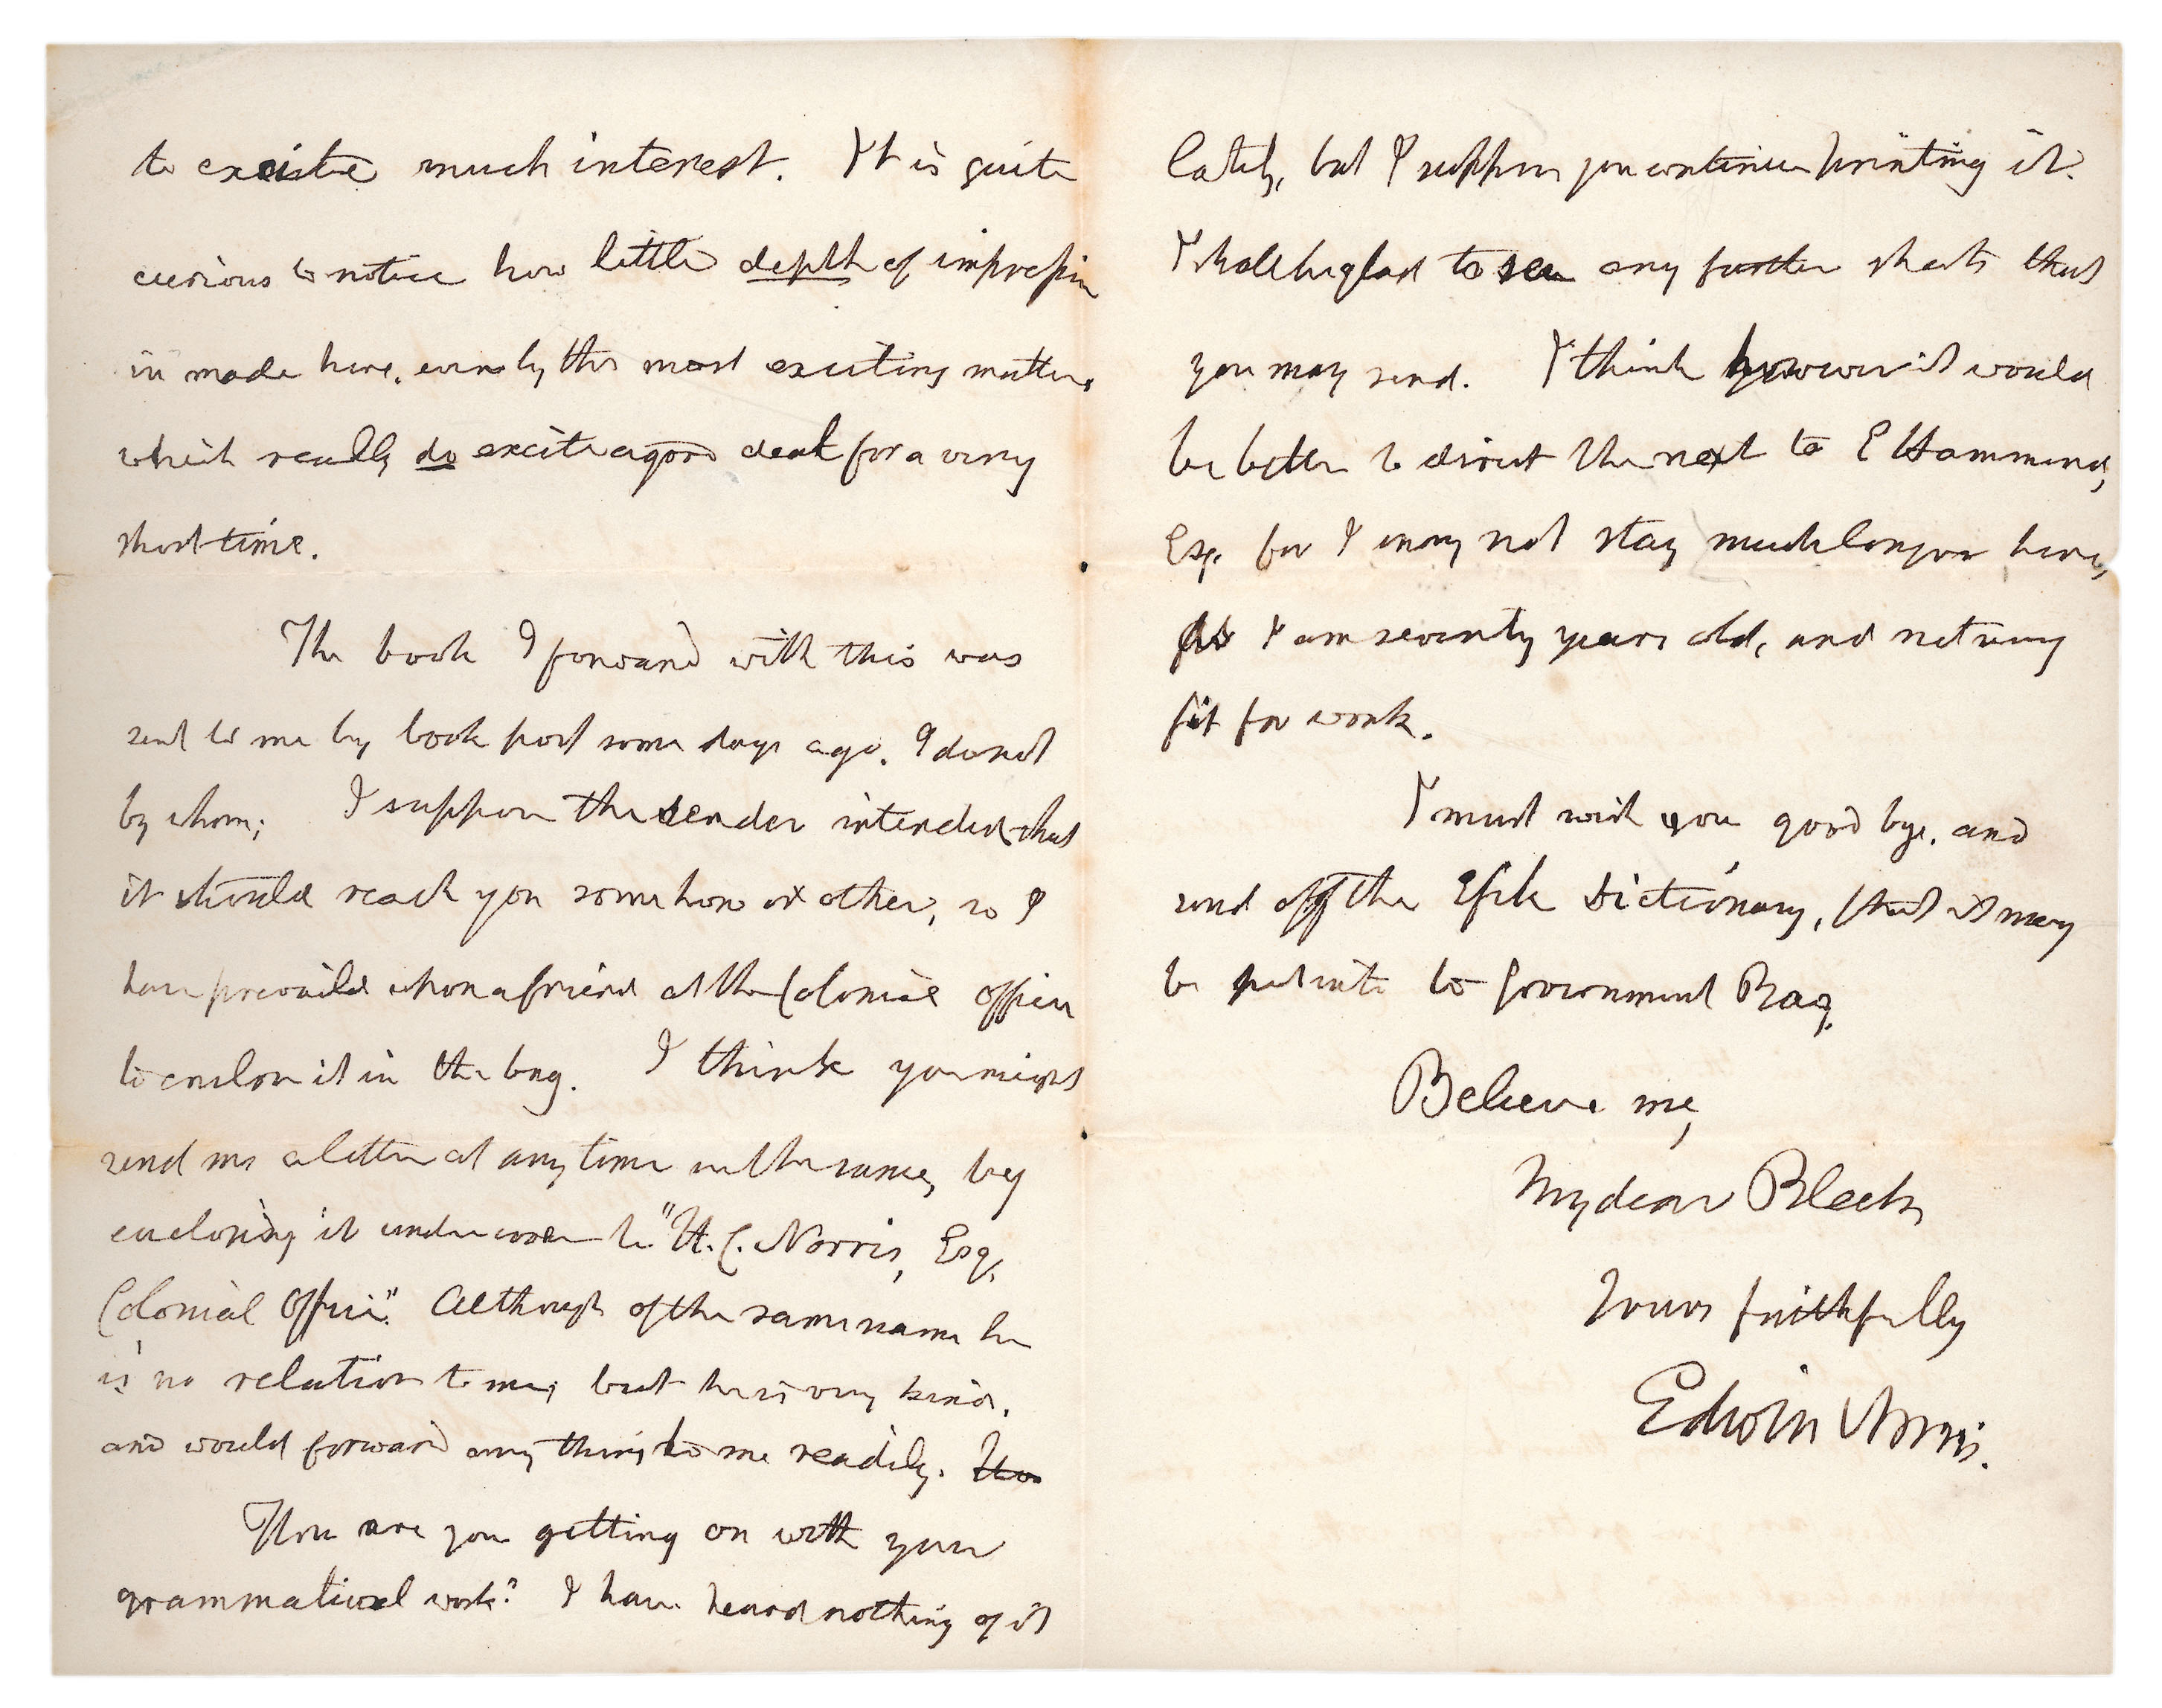 to excite much interest. It is quite
curious to notice how little depth of impression
is made here, even by the most exciting matters
which really do excite a good deal for a very
short time.
The book I forward with this was
sent to me by book post some days ago. I do not
by whom; I suppose the sender intended that
it should reach you somehow or other, so I
have prevailed upon a friend at the Colonial Office
to enclose it in the bag. I think you might
send me a letter at any time in the same, by
enclosing it under cover to "H. C. Norris, Esq,
Colonial Office". Although of the same name he
is no relation to me; but he is very kind,
and would forward any thing to me readily.
How are you getting on with your
grammatical work? I have heard nothing of it
lately, but I suppose you continue printing it.
I shall be glad to see any further sheets that
you may send. I think however it would
be better to direct the next to E Hammond,
Esq. for I may not stay much longer here,
As I am seventy years old, and not very
fit for work.
I must wish you good bye, and
send off the Efik Dictionary, that it may
be put into to Government Bag.
Believe me,
My dear Bleek,
Yours faithfully
Edwin Norris.